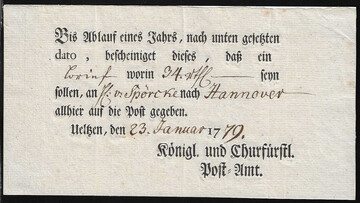 Bis Ablauf eines Jahrs, nach unten gesetzten
dato, bescheiniget dieses, daß ein
brief worin 34. rthl seyn
sollen, an H: v. Spörcke nach Hannover
allhier auf die Post gegeben.
Ueltzen, den 23. Januar 1779.
Königl. und Churfürstl.
Post-Amt.